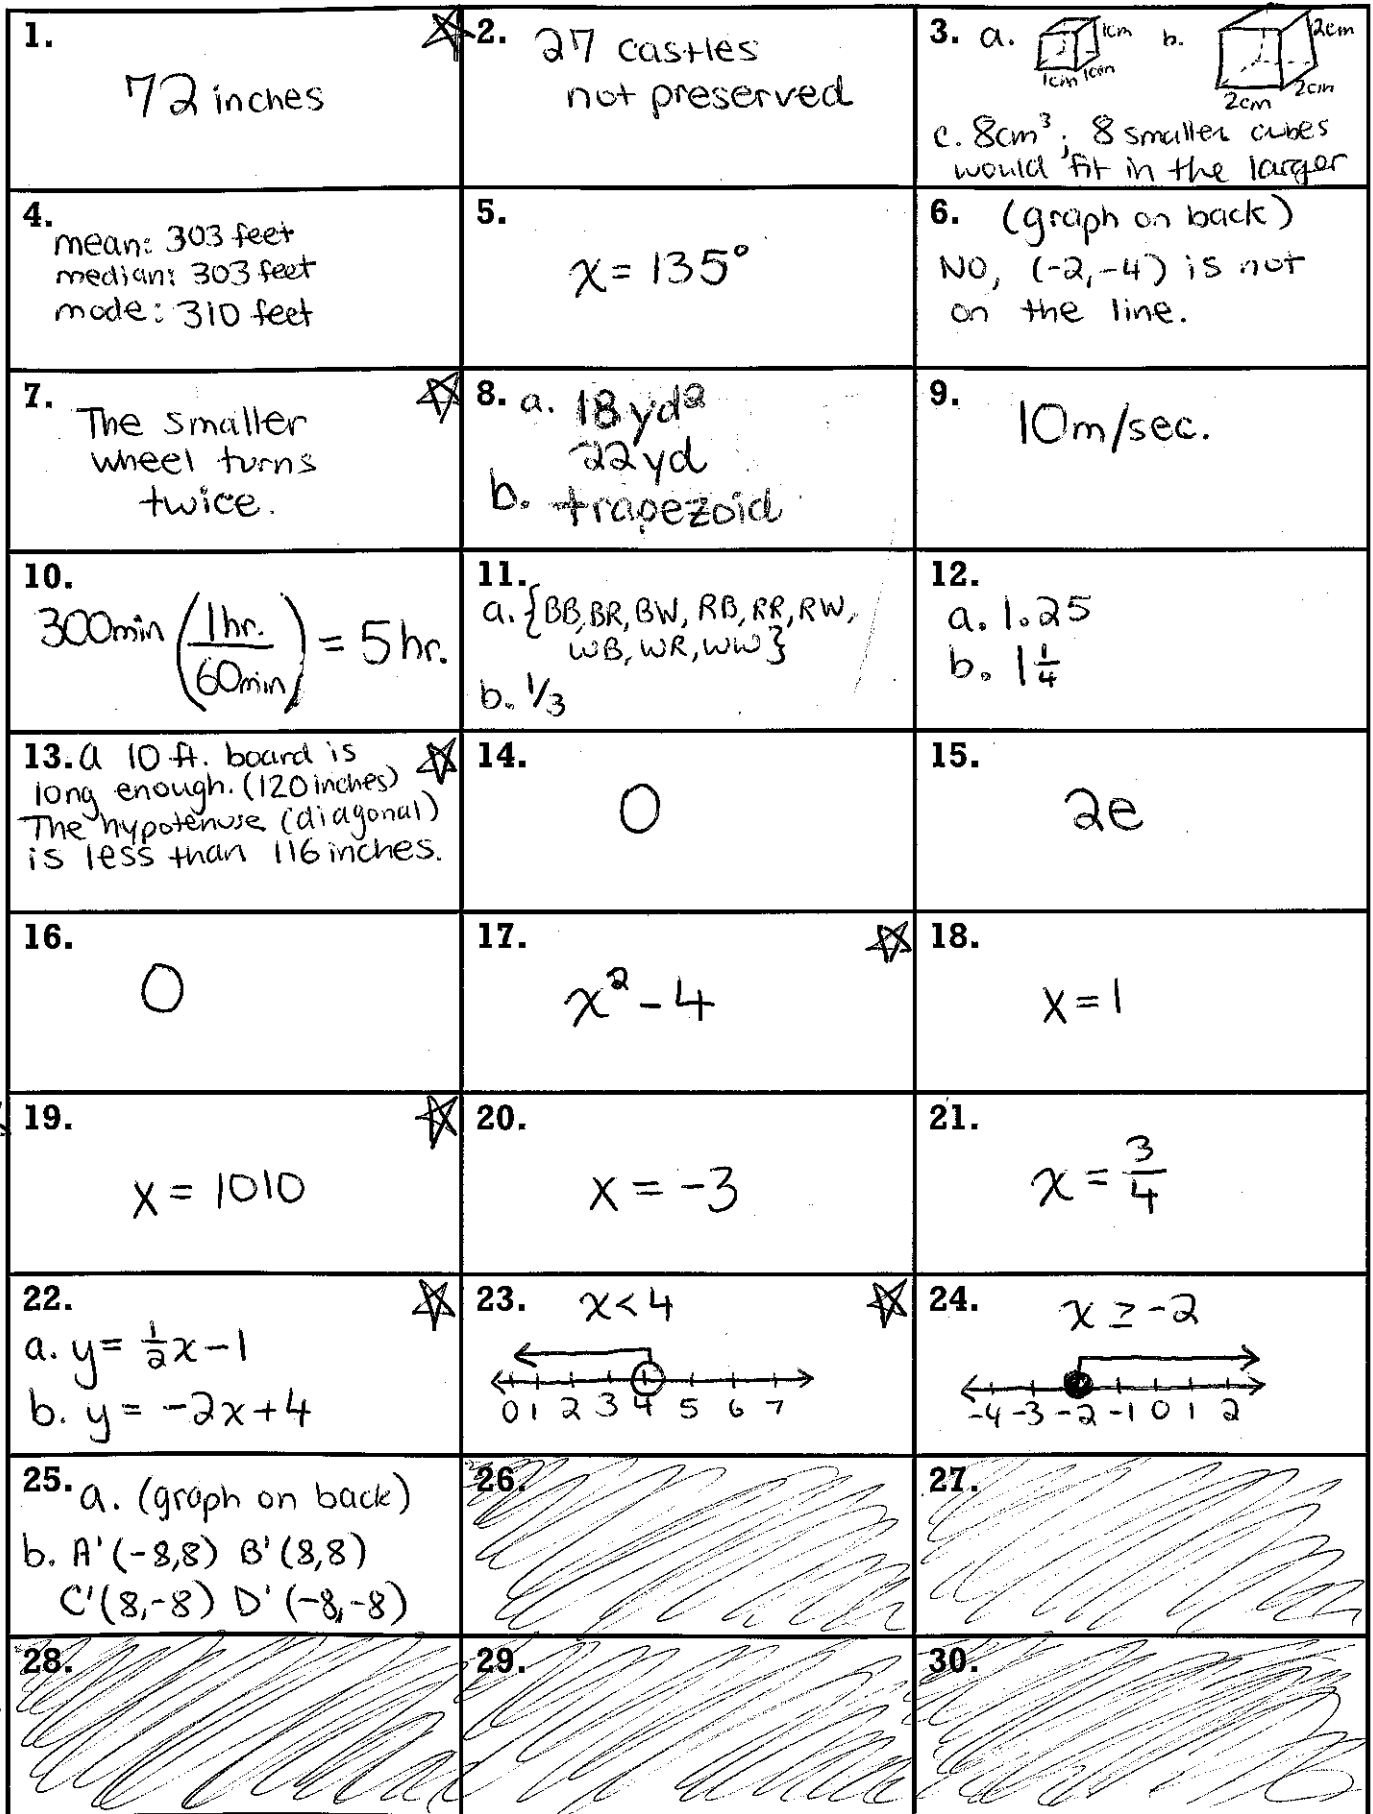 1.
72 inches
2. 27 castles
not preserved
3. a. 1cm 1cm 1cm b. 2cm 2cm 2cm
c. 8cm³; 8 smaller cubes
would fit in the larger
4.
mean: 303 feet
median: 303 feet
mode: 310 feet
5.
x = 135°
6. (graph on back)
NO, (-2,-4) is not
on the line.
7. The smaller
wheel turns
twice.
8. a. 18yd²
22yd
b. trapezoid
9. 10m/sec.
10.
300min (1hr./60min) = 5hr.
11.
a. {BB,BR,BW,RB,RR,RW,
WB,WR,WW}
b. 1/3
12.
a. 1.25
b. 1 1/4
13. a 10 ft. board is
long enough. (120 inches)
The hypotenuse (diagonal)
is less than 116 inches.
14.
0
15.
2e
16.
0
17.
x² - 4
18.
x = 1
19.
x = 1010
20.
x = -3
21.
x = 3/4
22.
a. y = 1/2x - 1
b. y = -2x+4
23. x < 4
0 1 2 3 4 5 6 7
24. x ≥ -2
-4 -3 -2 -1 0 1 2
25. a. (graph on back)
b. A'(-8,8) B'(8,8)
C'(8,-8) D'(-8,-8)
26.
27.
28.
29.
30.